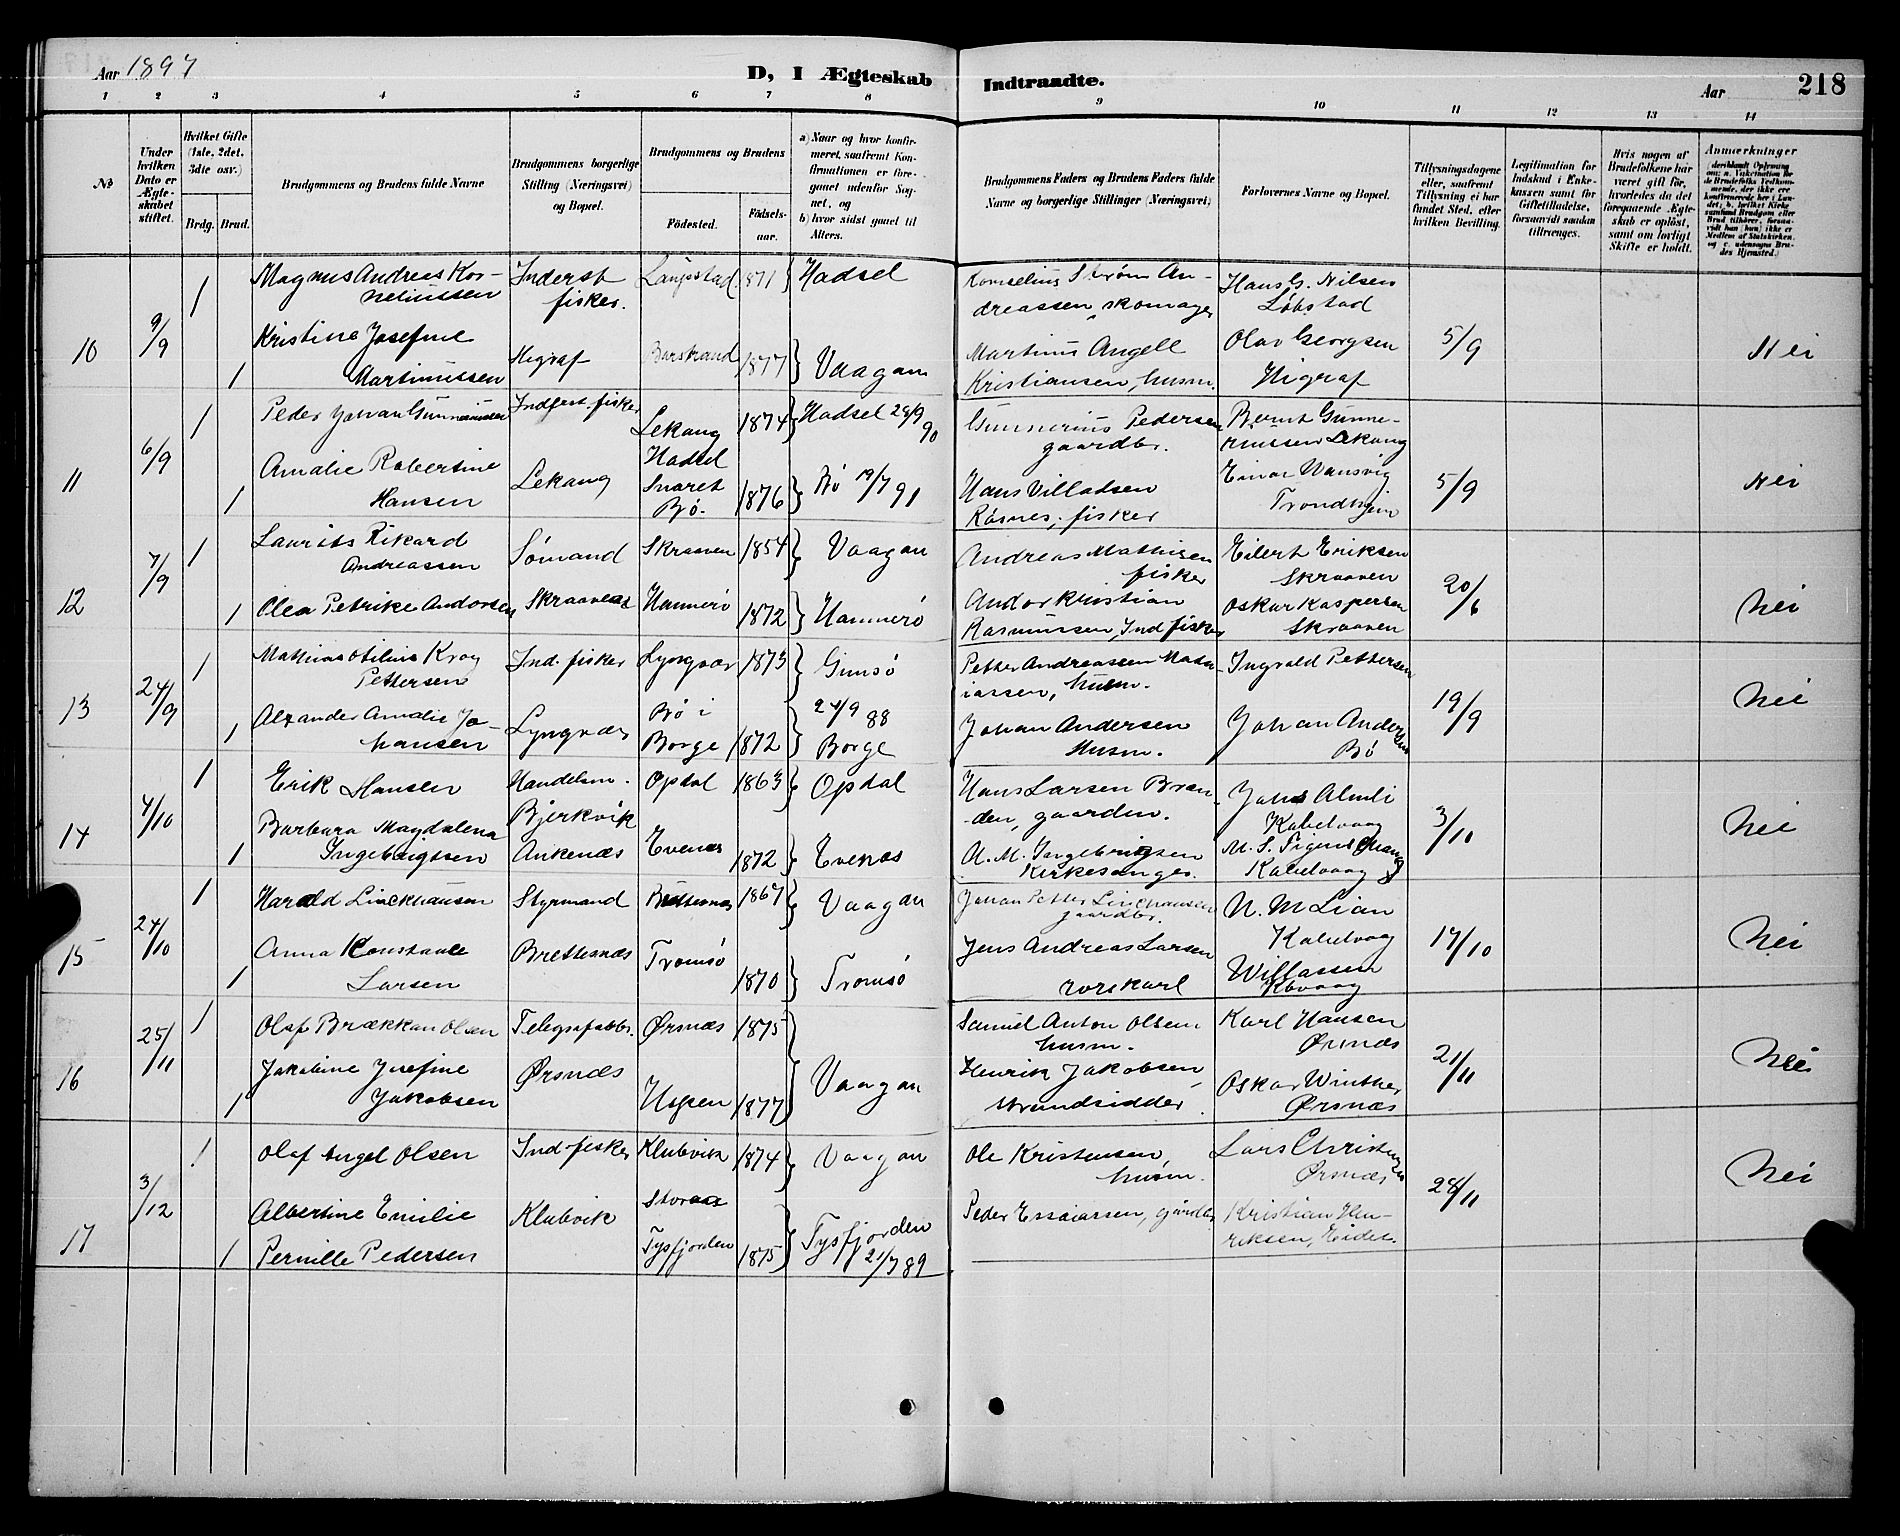 Aar 1897
D, I Ægteskab
Indtraadte.
Aar
218
1 2 3 4 5 6 7 8 9 10 11 12 13 14
No
Under hvilken Dato er Ægteskabet stiftet.
Hvilket Gifte (1ste, 2det, 3die osv.)
Brdg. Brud.
Brudgommens og Brudens fulde Navne
Brudgommens borgerlige Stilling (Næringsvei) og Bopæl.
Brudgommens og Brudens
Fødested.
Fødselsaar.
a) Naar og hvor konfirmeret, saafremt Konfirmationen er foregaaet udenfor Sognet, og
b) hvor sidst gaaet til Alters.
Brudgommens Faders og Brudens Faders fulde Navne og borgerlige Stillinger (Næringsvei)
Forlovernes Navne og Bopæl.
Tillysningsdagene eller, saafremt Tillysning ei har fundet Sted, efter hvilken Bevilling.
Legitimation for Indskud i Enkekassen samt for Giftetilladelse, forsaavidt saadan tiltrænges.
Hvis nogen af Brudefolkene har været gift før, hvorledes da det foregaaende Ægteskab er opløst, samt om lovligt Skifte er holdt.
Anmerkninger
10 9/9 1 Magnus Andreas Korneliussen Inderst fisker. Laupstad 1871 Hadsel
Kornelius Strøm Andreassen, skomager
Hans G. Nilsen Løbstad
1 Kristine Josefine Martinussen Higraf Barstrand 1877 Vaagan
Martinus Angell Kristiansen, husm.
Olav Georgsen Higraf
5/9 Nei
11 6/9 1 Peder Johan Gunneriussen Indfest. fisker Lekang Hadsel 1874 Hadsel 28/9 90
Gunnerius Pedersen gaardbr.
Bernt Gunneriussen Lekang
1 Amalie Robertine Hansen Lekang Svaret Bø. 1876 Bø 19/7 91
Hans Villadsen Røsnes, fisker
Einar Wansvig Trondhjem
5/9 Nei
12 7/9 1 Laurits Rikard Andreassen Sømand Skraaven 1854 Vaagan
Andreas Mathisen fisker
Eilert Eriksen Skraaven
1 Olea Petrike Andorsen Skraaven Hammerø 1872 Hammerø
Andor Kristian Rasmussen, Ind fisker
Oskar Kaspersen Skraaven
20/6 Nei
13 24/9 1 Mathias Otilius Krog Pettersen Ind. fisker Lyngvær 1873 Gimsø
Petter Andreassen husm.
Ingvald Pettersen
1 Alexander Amalie Johansen Lyngvær Bø i Borge 1872 24/9 88 Borge
Johan Andersen Husm.
Johan Andersen Bø
19/9 Nei
14 4/10 1 Erik Hansen Handelsm. Opdal 1863 Opdal
Hans Larsen Brænden, gaarden.
Johs Almli Kabelvaag
1 Barbara Magdalena Ingebrigtsen Bjerkvik Ankenæs Evenes 1872 Evenæs
A. M. Ingebrigtsen Kirkesanger.
Kabelvaag
3/10 Nei
15 24/10 1 Harald Linckhausen Styrmand Brettesnæs 1867 Vaagan
Johan Petter Linchausen gaardbr.
N. M Lian Kabelvaag
1 Anna Konstanse Larsen Brettesnæs Tromsø 1870 Tromsø
Jens Andreas Larsen rorskarl
Willassen Kbvaag
17/10 Nei
16 25/11 1 Olaf Brækkan Olsen Telegrafarbb. Ørsnæs 1875
Samuel Anton Olsen husm.
Karl Hansen Ørsnæs
1 Jakobine Josefine Jakobsen Ørsnæs Hopen 1877 Vaagan
Henrik Jakobsen strandsidder
Oskar Winther Ørsnæs
21/11 Nei
17 3/12 1 Olaf Angel Olsen Ind. fisker Klubvik 1874 Vaagan
Ole Kristensen, husm.
Lars Christensen Ørsnæs
1 Albertine Emilie Pernille Pedersen Klubvik Storaa Tysfjorden 1875 Tysfjorden 21/7 89
Peder Essaiassen, gårdbr
Kristian Henriksen, Eidet.
28/11 Nei